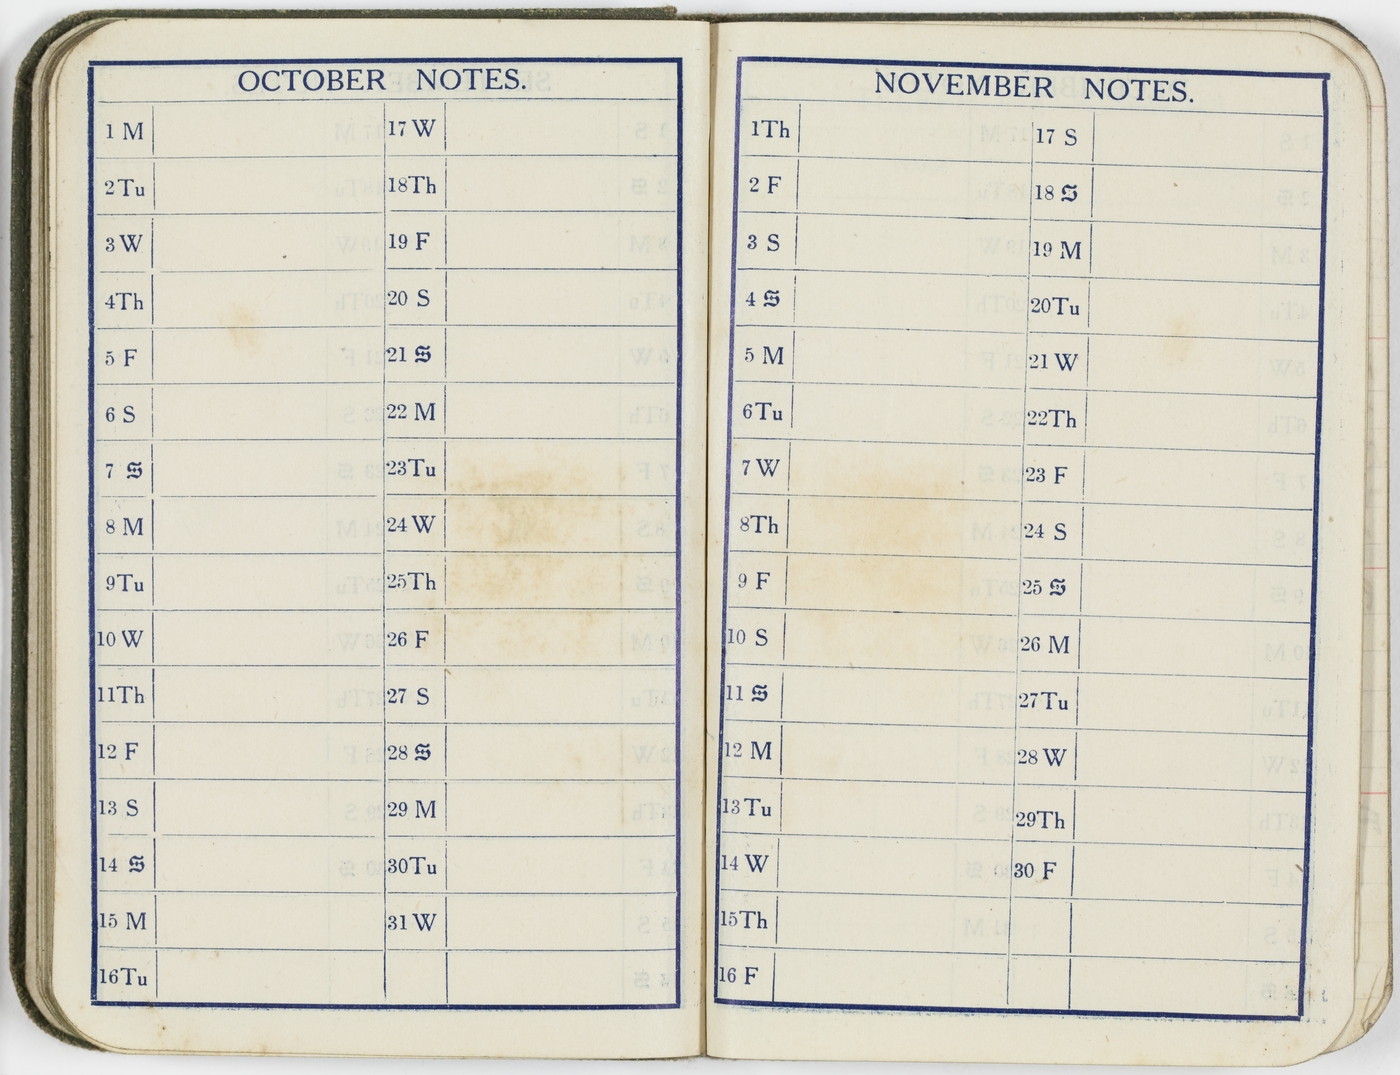 OCTOBER NOTES.
1 M
2 Tu
3 W
4 Th
5 F
6 S
7 S
8 M
9 Tu
10 W
11 Th
12 F
13 S
14 S
15 M
16 Tu
17 W
18 Th
19 F
20 S
21 S
22 M
23 Tu
24 W
25 Th
26 F
27 S
28 S
29 M
30 Tu
31 W
NOVEMBER NOTES.
1 Th
2 F
3 S
4 S
5 M
6 Tu
7 W
8 Th
9 F
10 S
11 S
12 M
13 Tu
14 W
15 Th
16 F
17 S
18 S
19 M
20 Tu
21 W
22 Th
23 F
24 S
25 S
26 M
27 Tu
28 W
29 Th
30 F